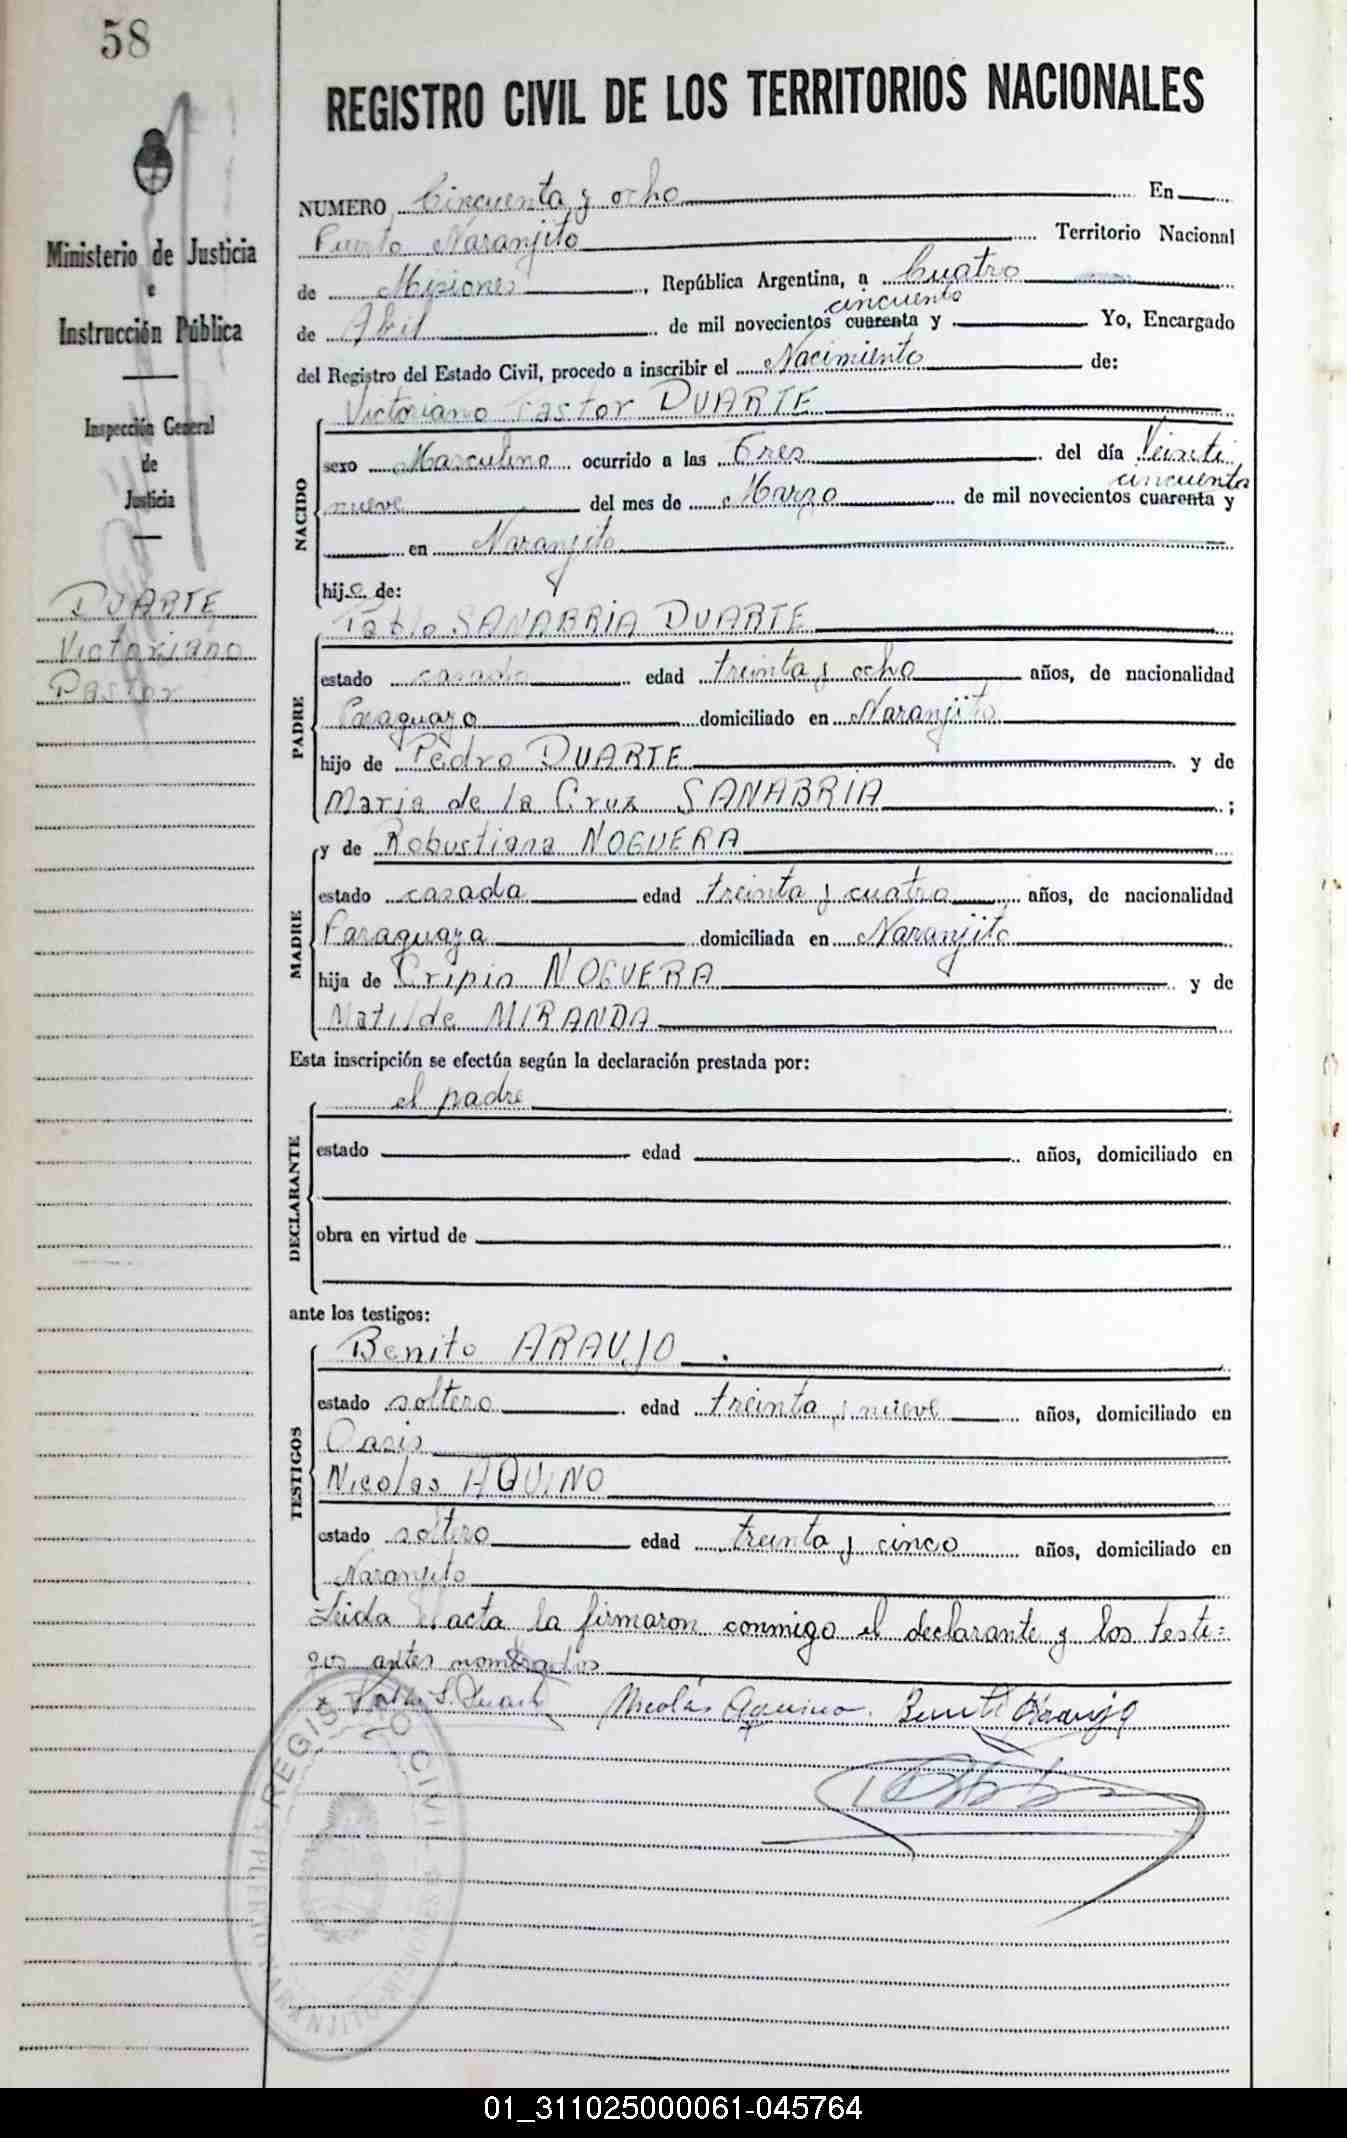 58
Ministerio de Justicia
e
Instrucción Pública
Inspección General
de
Justicia
DUARTE
Victoriano
Pastor
REGISTRO CIVIL DE LOS TERRITORIOS NACIONALES
NUMERO Cincuenta y ocho En
Puerto Naranjito Territorio Nacional
de Misiones, República Argentina, a Cuatro
cincuenta
de Abril de mil novecientos cuarenta y Yo, Encargado
del Registro del Estado Civil, procedo a inscribir el Nacimiento de:
Victoriano Pastor DUARTE
NACIDO
sexo Masculino ocurrido a las Tres del día Veinti
cincuenta
nueve del mes de Marzo de mil novecientos cuarenta y
en Naranjito
hijo de:
Pablo SANABRIA DUARTE
PADRE
estado casado edad treinta y ocho años, de nacionalidad
Paraguaya domiciliado en Naranjito
hijo de Pedro DUARTE y de
Maria de la Cruz SANABRIA ;
y de Robustiana NOGUERA
MADRE
estado casada edad treinta y cuatro años, de nacionalidad
Paraguaya domiciliada en Naranjito
hija de Cripin NOGUERA y de
Matilde MIRANDA
Esta inscripción se efectúa según la declaración prestada por:
el padre
DECLARANTE
estado edad años, domiciliado en
obra en virtud de
ante los testigos:
Benito ARAUJO
TESTIGOS
estado soltero edad treinta y nueve años, domiciliado en
Oasis
Nicolas AQUINO
estado soltero edad treinta y cinco años, domiciliado en
Naranjito
Leida el acta la firmaron conmigo el declarante y los testi=
gos antes nombrados
Nicolás Aquino Benito Araujo
REGISTRO CIVIL
01_311025000061-045764